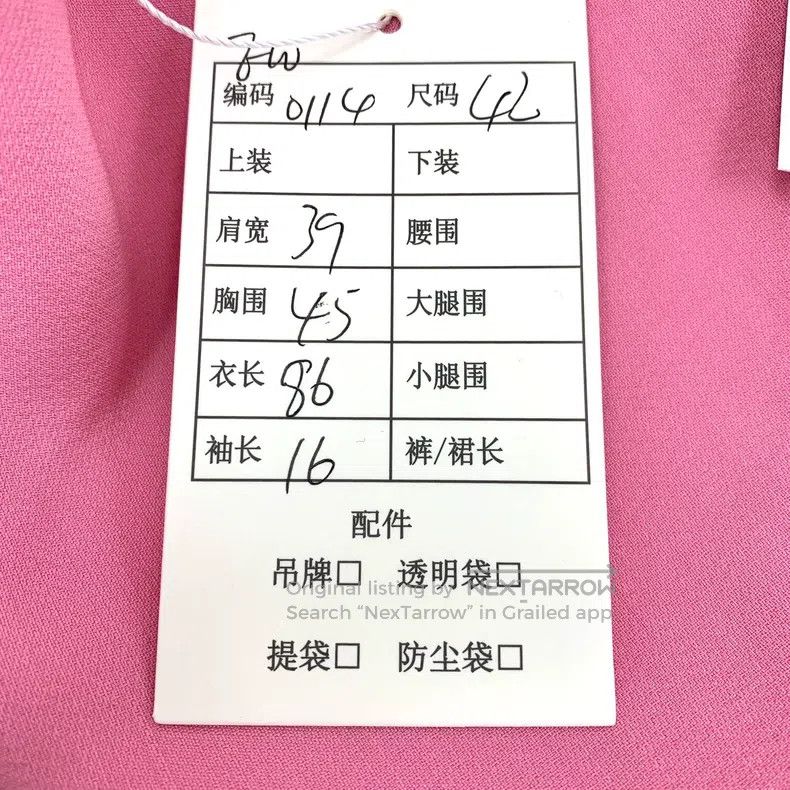 编码 0114 尺码 42
上装 下装
肩宽 39 腰围
胸围 45 大腿围
衣长 86 小腿围
袖长 16 裤/裙长
配件
吊牌□ 透明袋□
Original listing by NEXTARROW
Search “NexTarrow” in Grailed app
提袋□ 防尘袋□